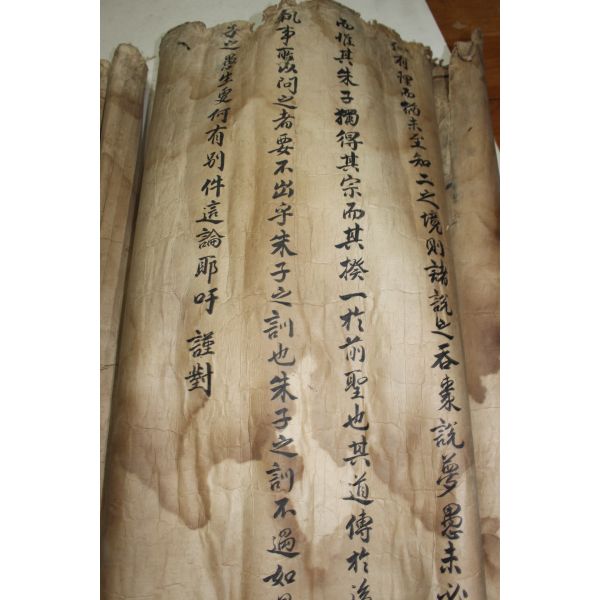 有理而猶未至知二之境則諸說之吞棗說夢愚未必
而惟其朱子獨得其宗而其揆一於前聖也其道傳於後
執事所以問之者要不出乎朱子之訓也朱子之訓不過如是
之愚生更何有別件這論耶吁謹對